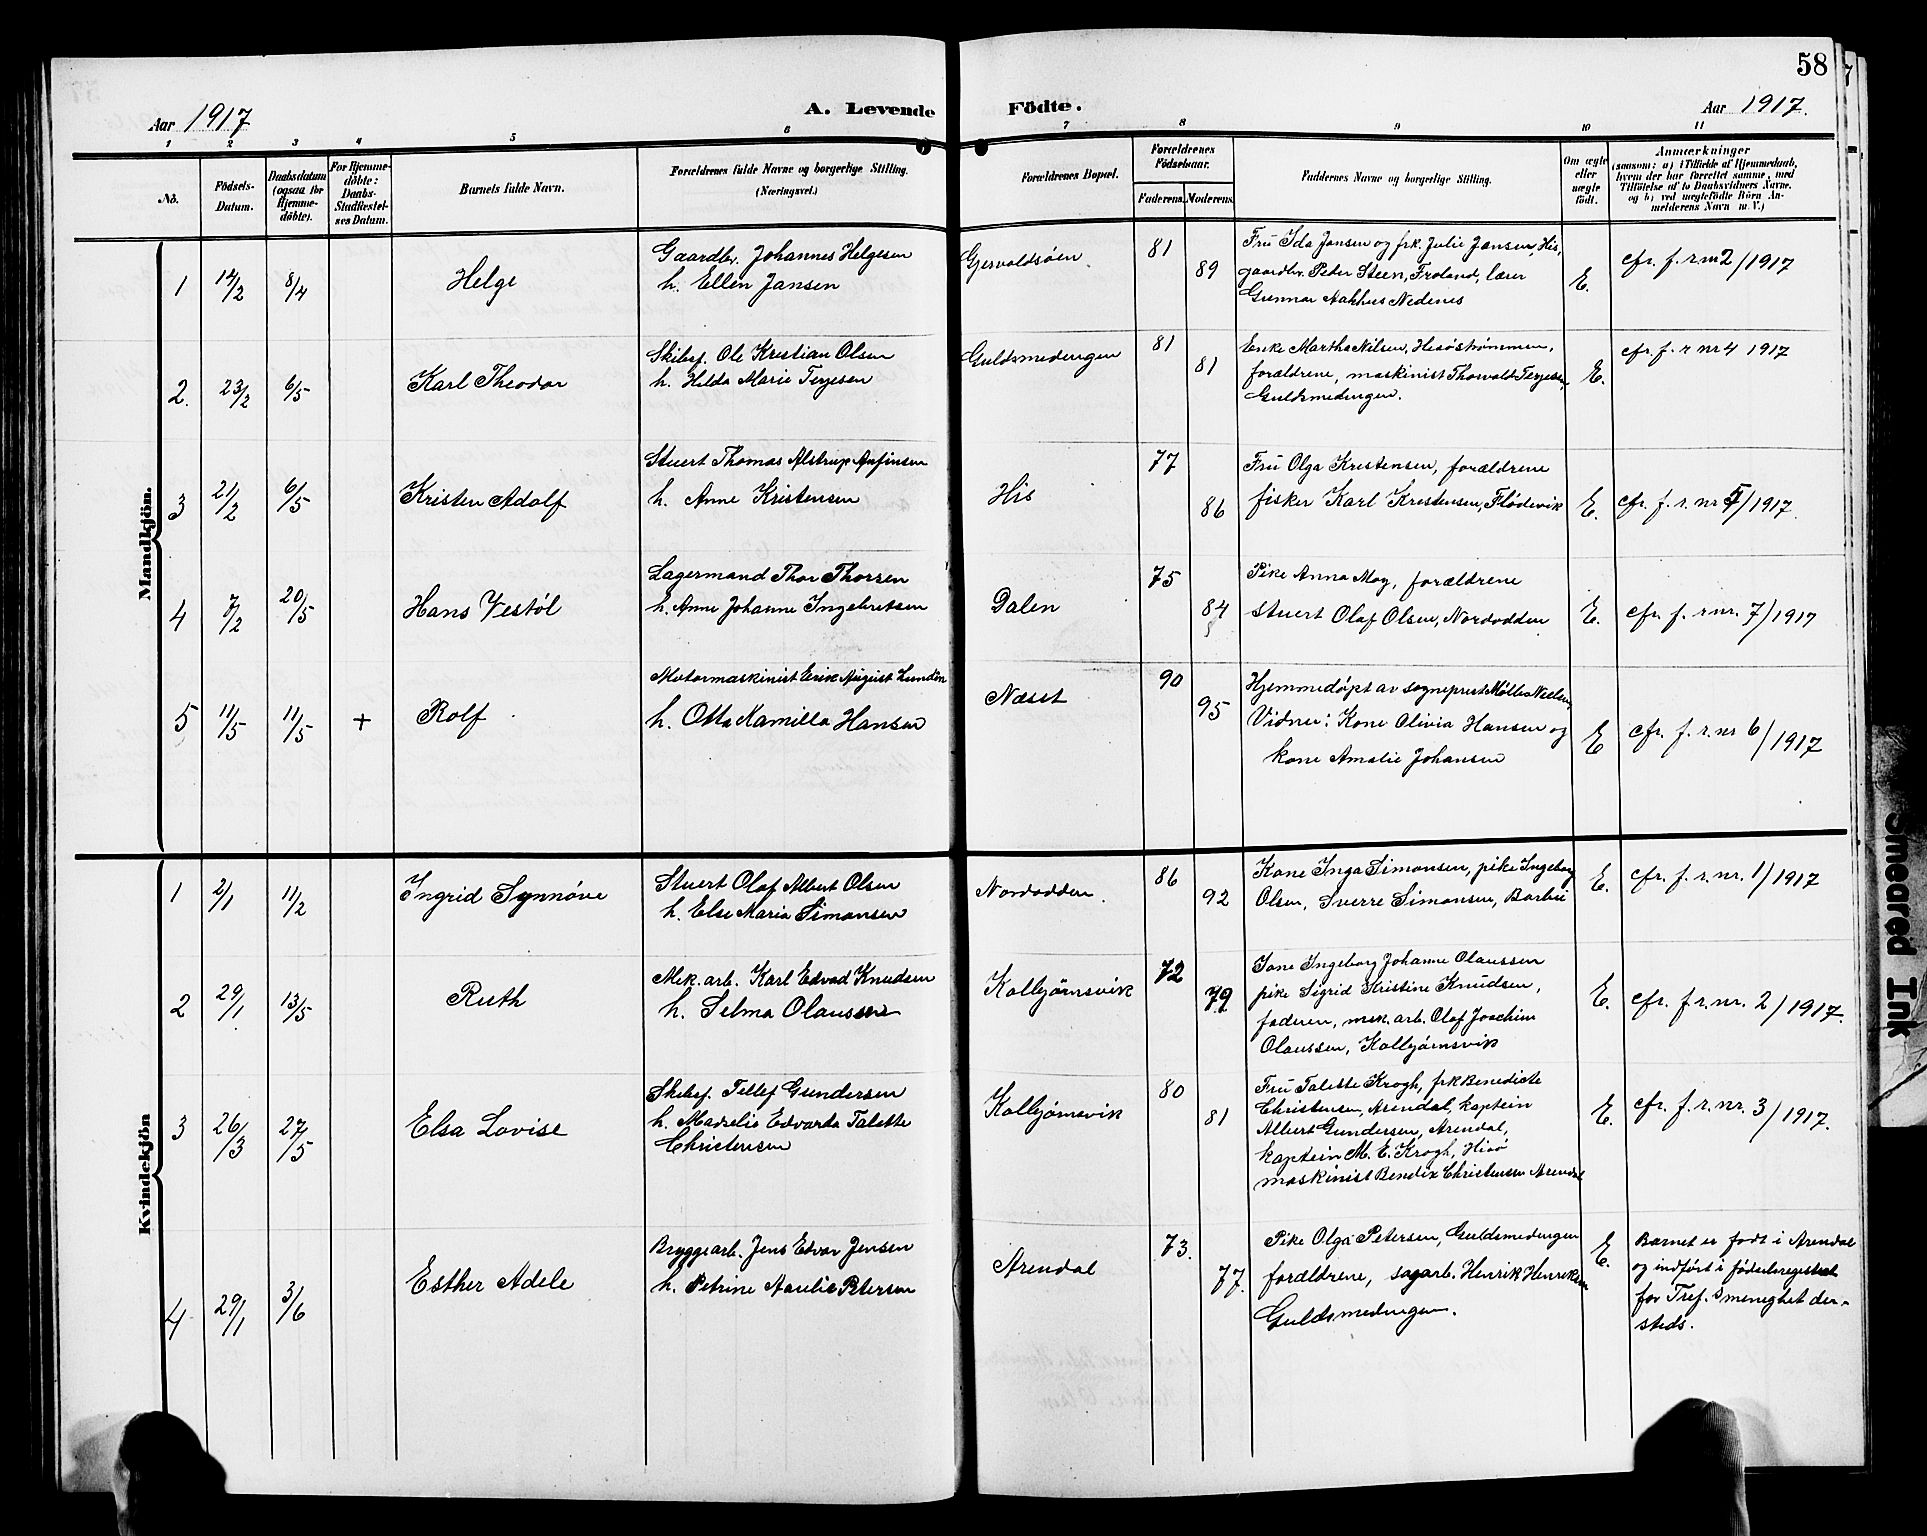 58
Aar 1917
A. Levende
Födte.
Aar 1917.
1 2 3 4 5 6 7 8 9 10 11
No.
Födsels-
Datum.
Daabsdatum
(ogsaa for
Hjemme-
döbte).
For Hjemme-
döbte:
Daabs-
Stadfæstel-
ses Datum.
Barnets fulde Navn.
Forældrenes fulde Navne og borgerlige Stilling.
(Næringsvei.)
Forældrenes Bopæl.
Forældrenes
Födselsaar.
Faderens. Moderens.
Faddernes Navne og borgerlige Stilling.
Om ægte
eller
uægte
födt.
Anmærkninger
(saasom: a) i Tilfælde af Hjemmedaab,
hvem der har forrettet samme, med
Tilföielse af to Daabsvidners Navne,
og b) ved uægtefödte Börn An-
melderens Navn m. V.)
Mandkjön.
1 14/2 8/4 Helge
Gaardbr. Johannes Helgesen
h. Ellen Jansen
Gjervoldsöen 81 89
Fru Ida Jansen og frk. Julie Jansen, His,
gaardbr. Peder Steen, Froland, lærer
Gunnar Aakhus Nedenes
E. cfr. f. r nr 2/1917
2. 23/2 6/5 Karl Theodor
Skibsf. Ole Kristian Olsen
h. Hilda Marie Terjesen
Guldsmedengen 81 81
Enke Martha Nilsen, Hisöströmmen,
forældrene, maskinist Thorvald Terjesen,
Guldsmedengen.
E. cfr. f. r nr 4 1917
3 21/2 6/5 Kristen Adolf
Stuert Thomas Alstrup Anfinsen
h. Anne Kristensen
His 77 86
Fru Olga Kristensen, forældrene
fisker Karl Kristensen, Flödevik
E. cfr. f. r. nr 5/1917.
4 7/2 20/5 Hans Vestöl
Lagermand Thor Thorsen
h. Anne Johanne Ingebretsen
Dalen 75 84
Pike Anna Moy, forældrene
stuert Olaf Olsen, Nordodden
E. cfr. f. r nr. 7/1917
5 11/5 11/5 + Rolf
Motormaskinist Erik August Lundén
h. Otta Kamilla Hansen
Næset 90 95
Hjemmedöpt av sogneprest Möller Nielsen
Vidner: Kone Olivia Hansen og
kone Amalie Johansen
E cfr. f. r. nr 6/1917
Kvindekjön
1 2/1 11/2 Ingrid Synnöve
Stuert Olaf Albert Olsen
h. Else Marie Simonsen
Nordodden. 86 92
Kone Inga Simonsen, pike Ingeborg
Olsen, Sverre Simonsen, Barbu
E. cfr. f. r. nr. 1/1917
2 29/1 13/5 Ruth
Mek. arb. Karl Edvad Knudsen
h. Selma Olaussen
Kolbjörnsvik 72 79
Kone Ingeborg Johanne Olaussen
pike Sigrid Kristine Knudsen,
faderen, mek. arb. Olaf Joachim
Olaussen, Kolbjörnsvik
E. cfr. f r. nr. 2/1917.
3 26/3 27/5 Elsa Lovise
Skibsf. Tellef Gundersen
h. Marelie Edvarda Talette
Christensen
Kolbjörnsvik 80 81
Fru Talette Krogh, frk Benedicte
Christensen, Arendal, kaptein
Albert Gundersen, Arendal,
kaptein M. E. Krogh, Hisö
maskinist Bendix Christensen Arendal
E. cfr. f. r. nr. 3/1917.
4 29/1 3/6 Esther Adele
Bryggearb. Jens Edvar Jensen
h. Petrine Aurelie Petersen
Arendal 73. 77.
Pike Olga Petersen, Guldsmedengen
forældrene, sagarb. Henrik Henriksen
Guldsmedengen.
E. Barnet er födt i Arendal
og indfört i födselsregistret
for Tref.smenighet der-
steds.
Smeared Ink